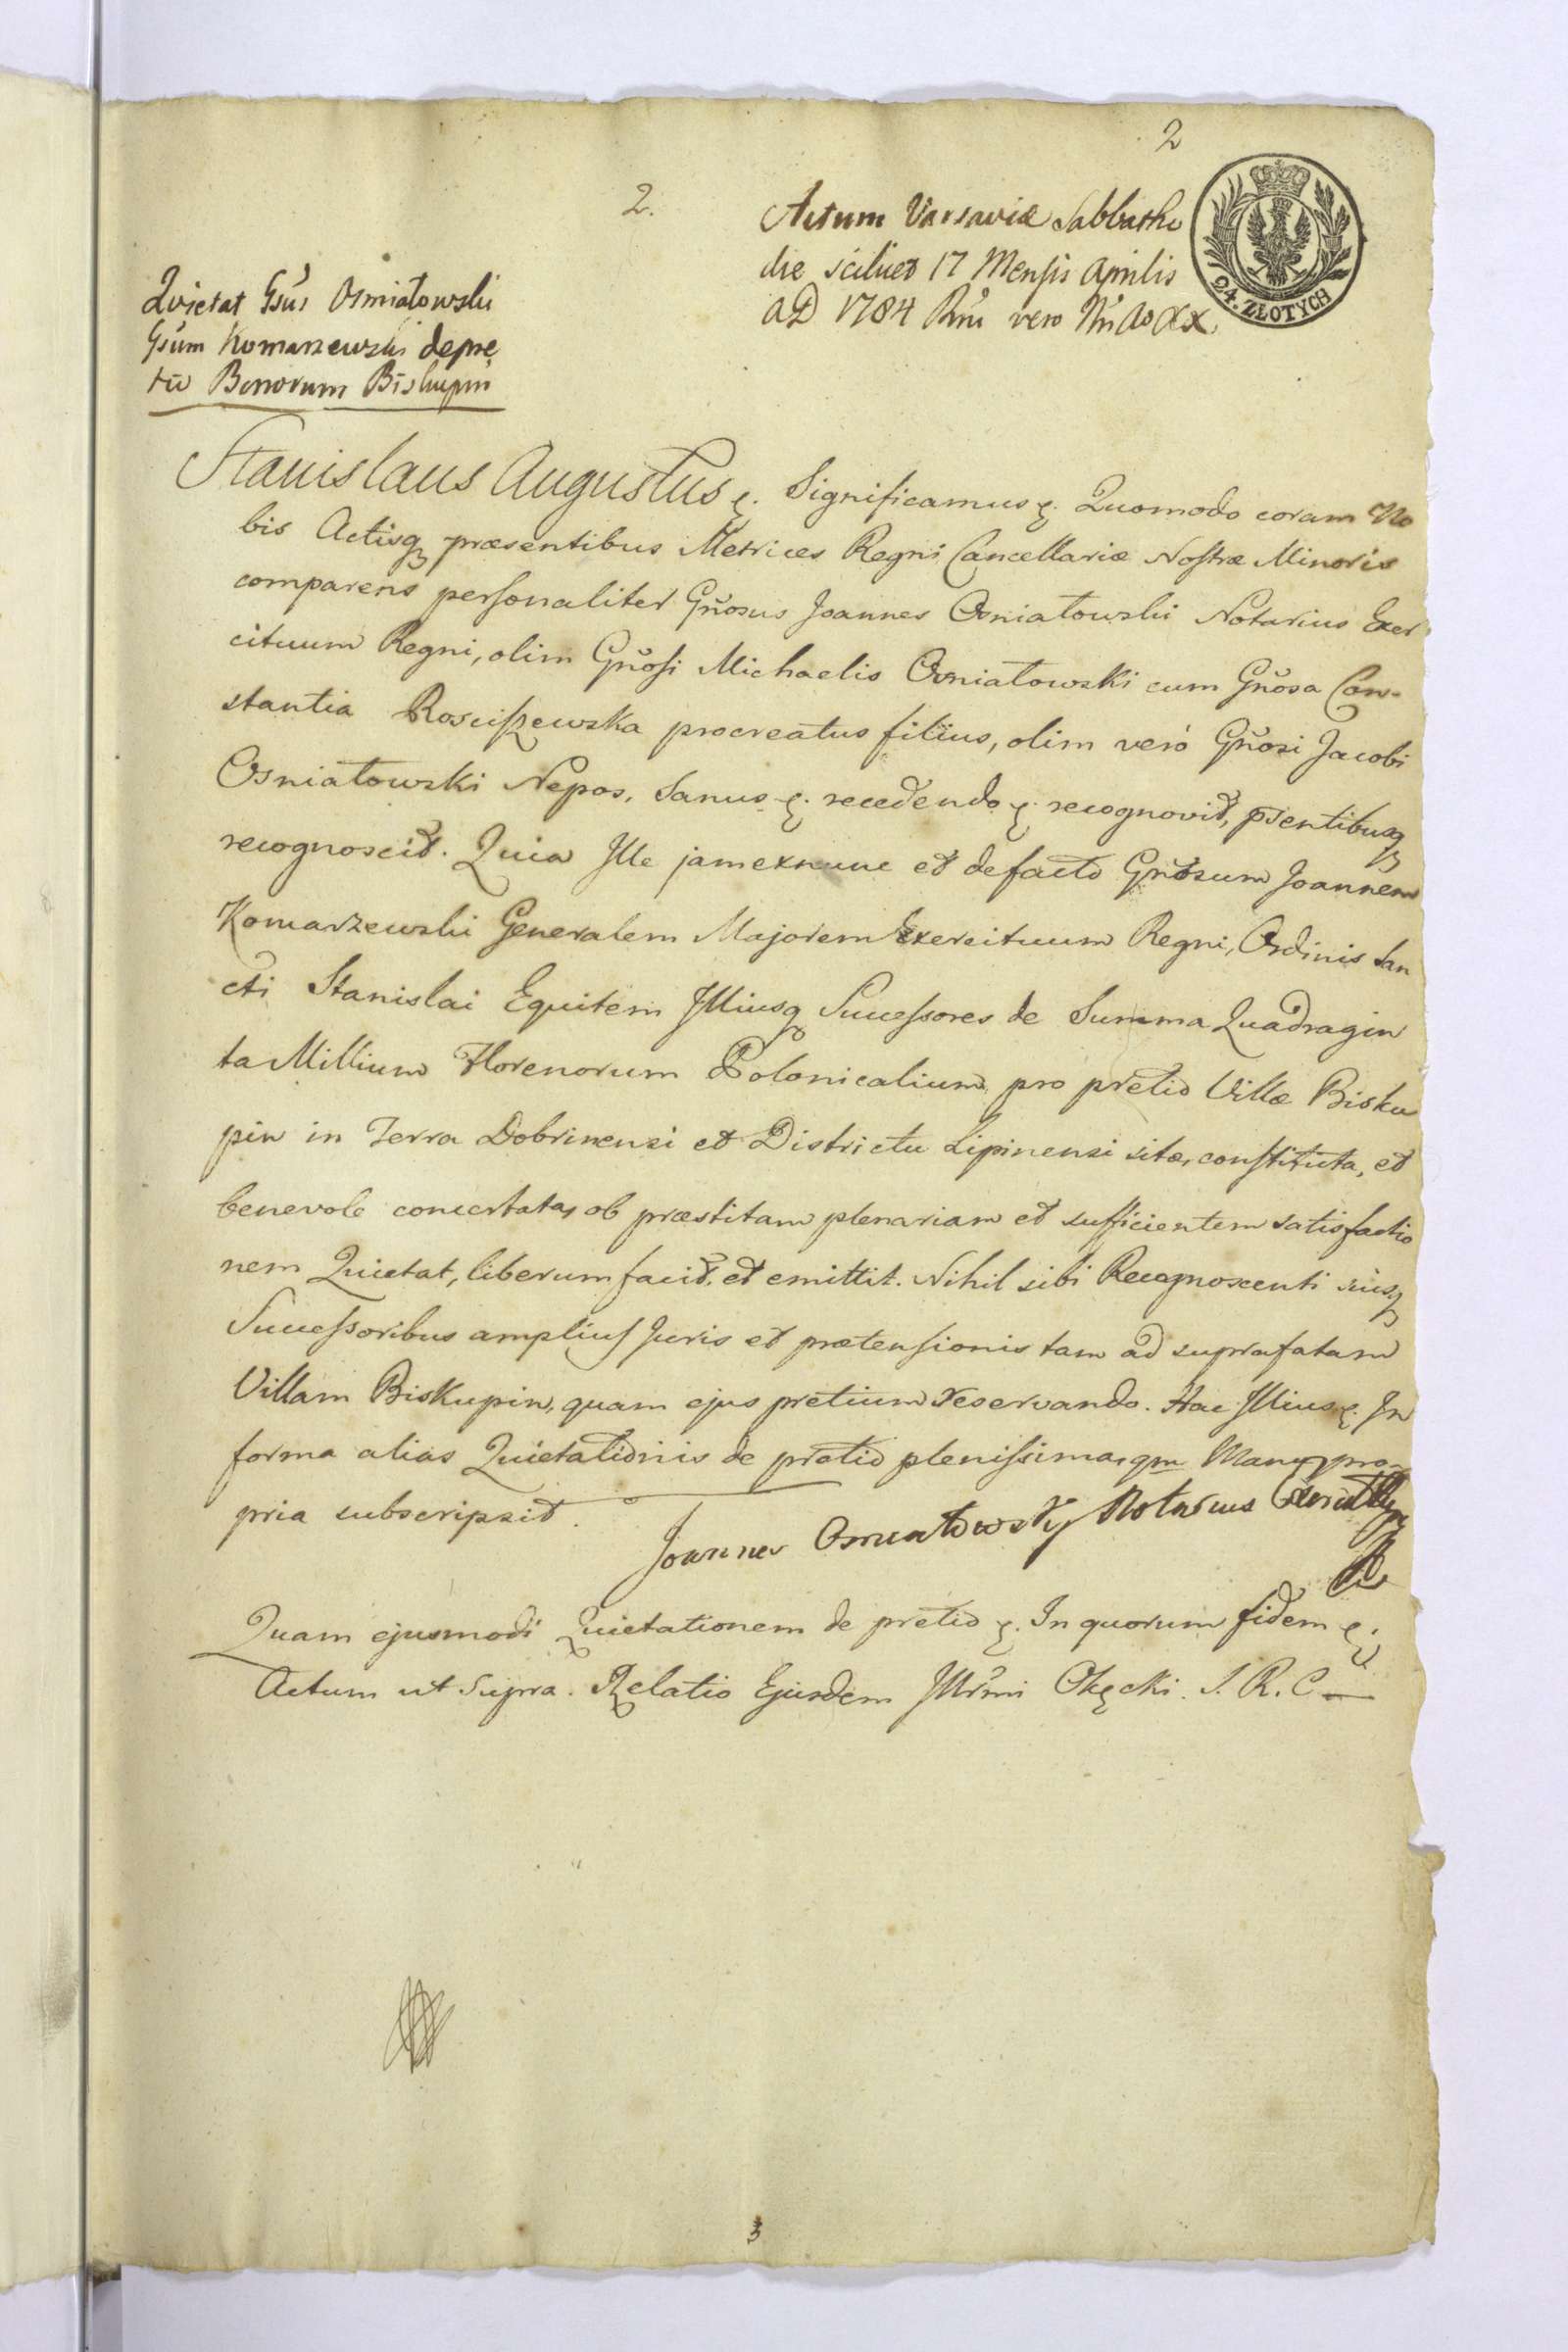 2
2.
Actum Varsaviæ Sabbatho
die scilicet 17 Mensis Aprilis
AD 1784 Rñi vero Nri Ao XX.
24. ZŁOTYCH
Quietat Gsūs Osmiałowski
Gsūm Komarzewski depre
tiō Bonorum Biskupin
Stanislaus Augustus ꝛ. Significamus ꝛ. Quomodo coram No
bis Actisq præsentibus Metrices Regni Cancellariæ Nostræ Minoris
comparens personaliter Gñosus Joannes Osniałowski Notarius Exer
cituum Regni, olim Gñosi Michaelis Osniałowski cum Gñosa Con-
stantia Rosciszewska procreatus filius, olim verò Gñosi Jacobi
Osniałowski Nepos, Sanus ꝛ. recedendo ꝛ. recognovit, pñsentibusq
recognoscit. Quia Ille jamexnunc et defacto Gñosum Joannem
Komarzewski Generalem Majorem Exercituum Regni, Ordinis San
cti Stanislai Equitem Illiusq Successores de Summa Quadragin
ta Millium Florenorum Polonicalium pro pretio Villæ Bisku
pin in Terra Dobrinensi et Districtu Lipinensi sitæ, constituta, et
benevole concertata, ob præstitam plenariam et sufficientem satisfactio
nem Quietat, liberum facit, et emittit. Nihil sibi Recognoscenti suisq
Successoribus amplius Juris et prætensionis tam ad suprafatam
Villam Biskupin, quam ejus pretium reservando. Hac Illius ꝛ. In
forma alias Quietationis de pretio plenissima, qm Manu pro-
pria subscripsit.
Joannes Osmiałowsky Notarius
Quam ejusmodi Quietationem de pretio ꝛ. In quorum fidem ꝛ.
Actum ut Supra. Relatio Ejusdem Illrmi Okęcki. S. R. C
3